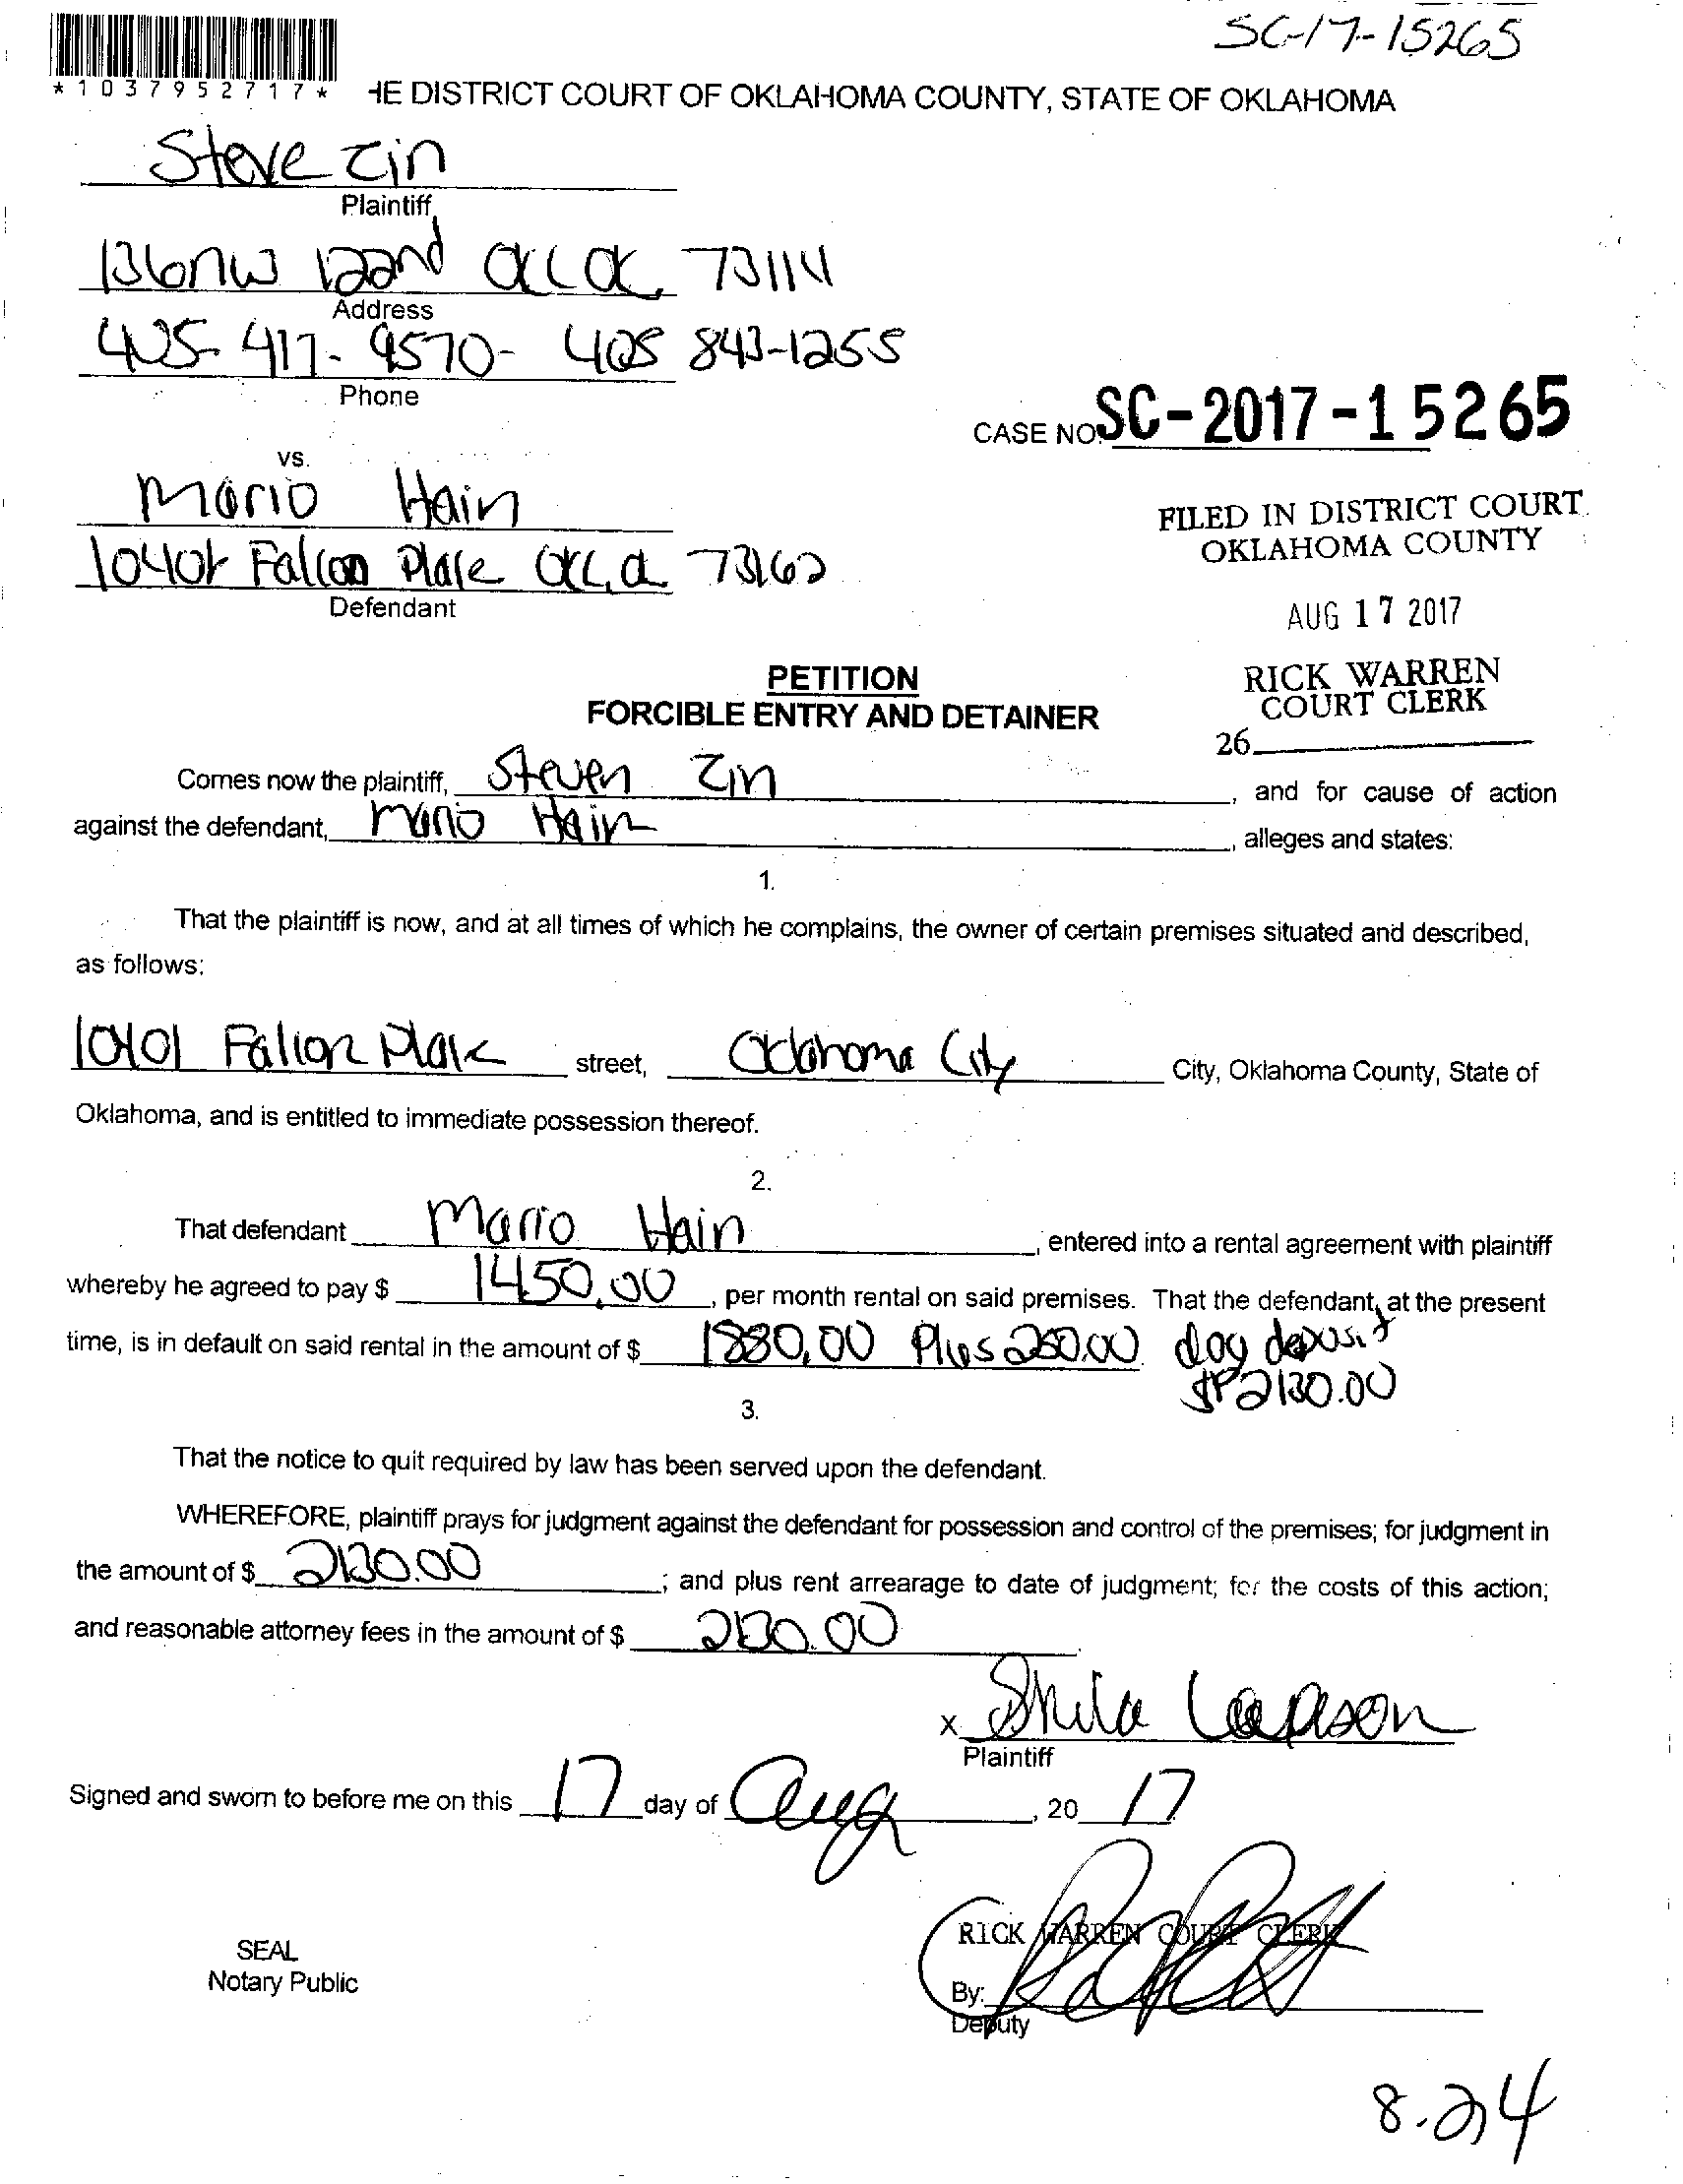 SC-17-15265
*1037952717*
HE DISTRICT COURT OF OKLAHOMA COUNTY, STATE OF OKLAHOMA
Steve Zin
Plaintiff
136 NW 122nd OKC, OK 73114
Address
405-417-9570- 405 843-1255
Phone
CASE NO. SC-2017-15265
vs.
Mario Hain
10401 Falcon Place OKC, OK 73162
Defendant
FILED IN DISTRICT COURT
OKLAHOMA COUNTY
AUG 17 2017
RICK WARREN
COURT CLERK
26
PETITION
FORCIBLE ENTRY AND DETAINER
Comes now the plaintiff, Steven Zin, and for cause of action
against the defendant, Mario Hain, alleges and states:
1.
That the plaintiff is now, and at all times of which he complains, the owner of certain premises situated and described,
as follows:
10401 Falcon Place street, Oklahoma City City, Oklahoma County, State of
Oklahoma, and is entitled to immediate possession thereof.
2.
That defendant Mario Hain, entered into a rental agreement with plaintiff
whereby he agreed to pay $ 1450.00, per month rental on said premises. That the defendant, at the present
time, is in default on said rental in the amount of $ 1880.00 Plus 250.00 dog deposit
2130.00
3.
That the notice to quit required by law has been served upon the defendant.
WHEREFORE, plaintiff prays for judgment against the defendant for possession and control of the premises; for judgment in
the amount of $ 2130.00; and plus rent arrearage to date of judgment; for the costs of this action;
and reasonable attorney fees in the amount of $ 2130.00
x Shila
Plaintiff
Signed and sworn to before me on this 17 day of Aug, 20 17
RICK WARREN COURT CLERK
SEAL
Notary Public
By:
Deputy
8.24